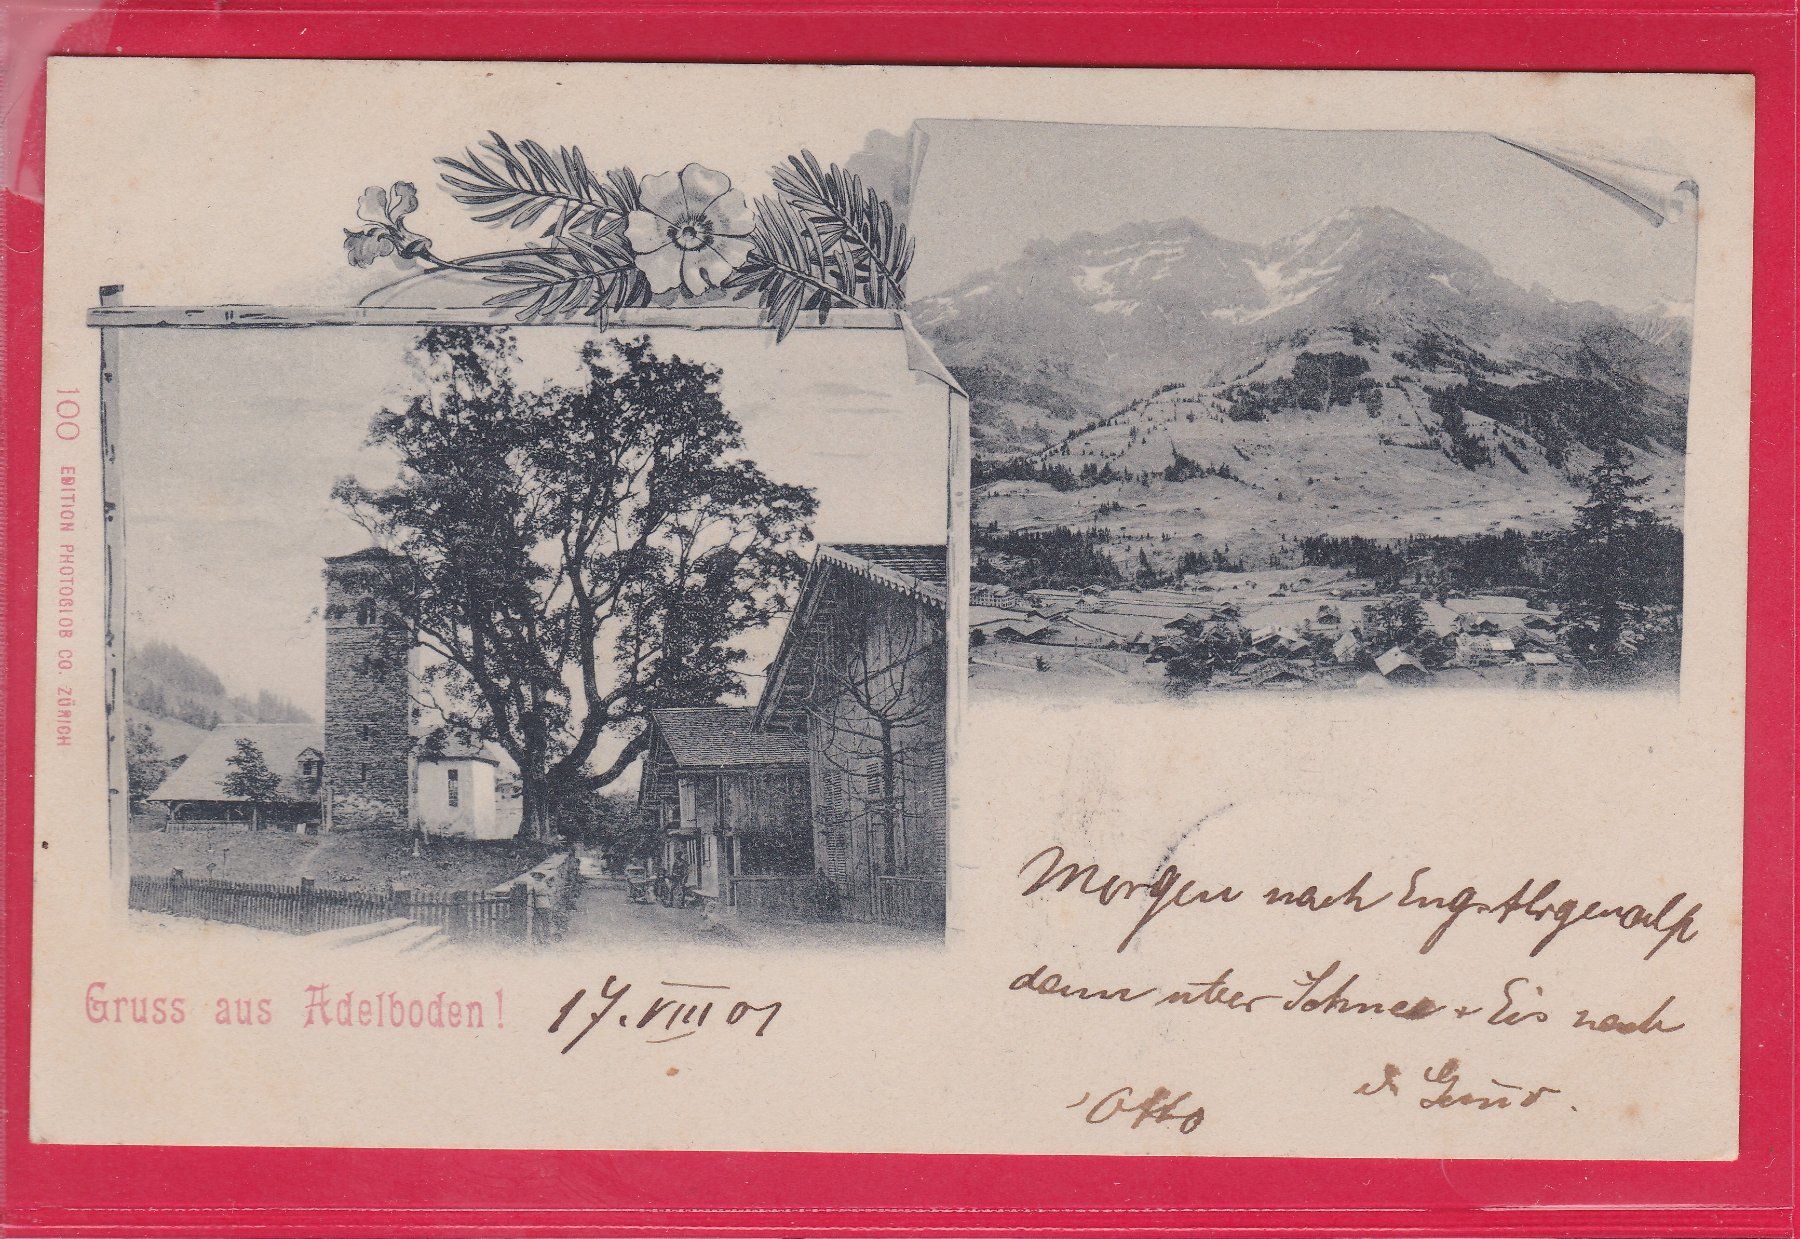 100 EDITION PHOTOGLOB CO. ZÜRICH
Gruss aus Adelboden!
17. VIII 01
Morgen nach Engstligenalp
dann über Schnee + Eis nach
d.
Otto